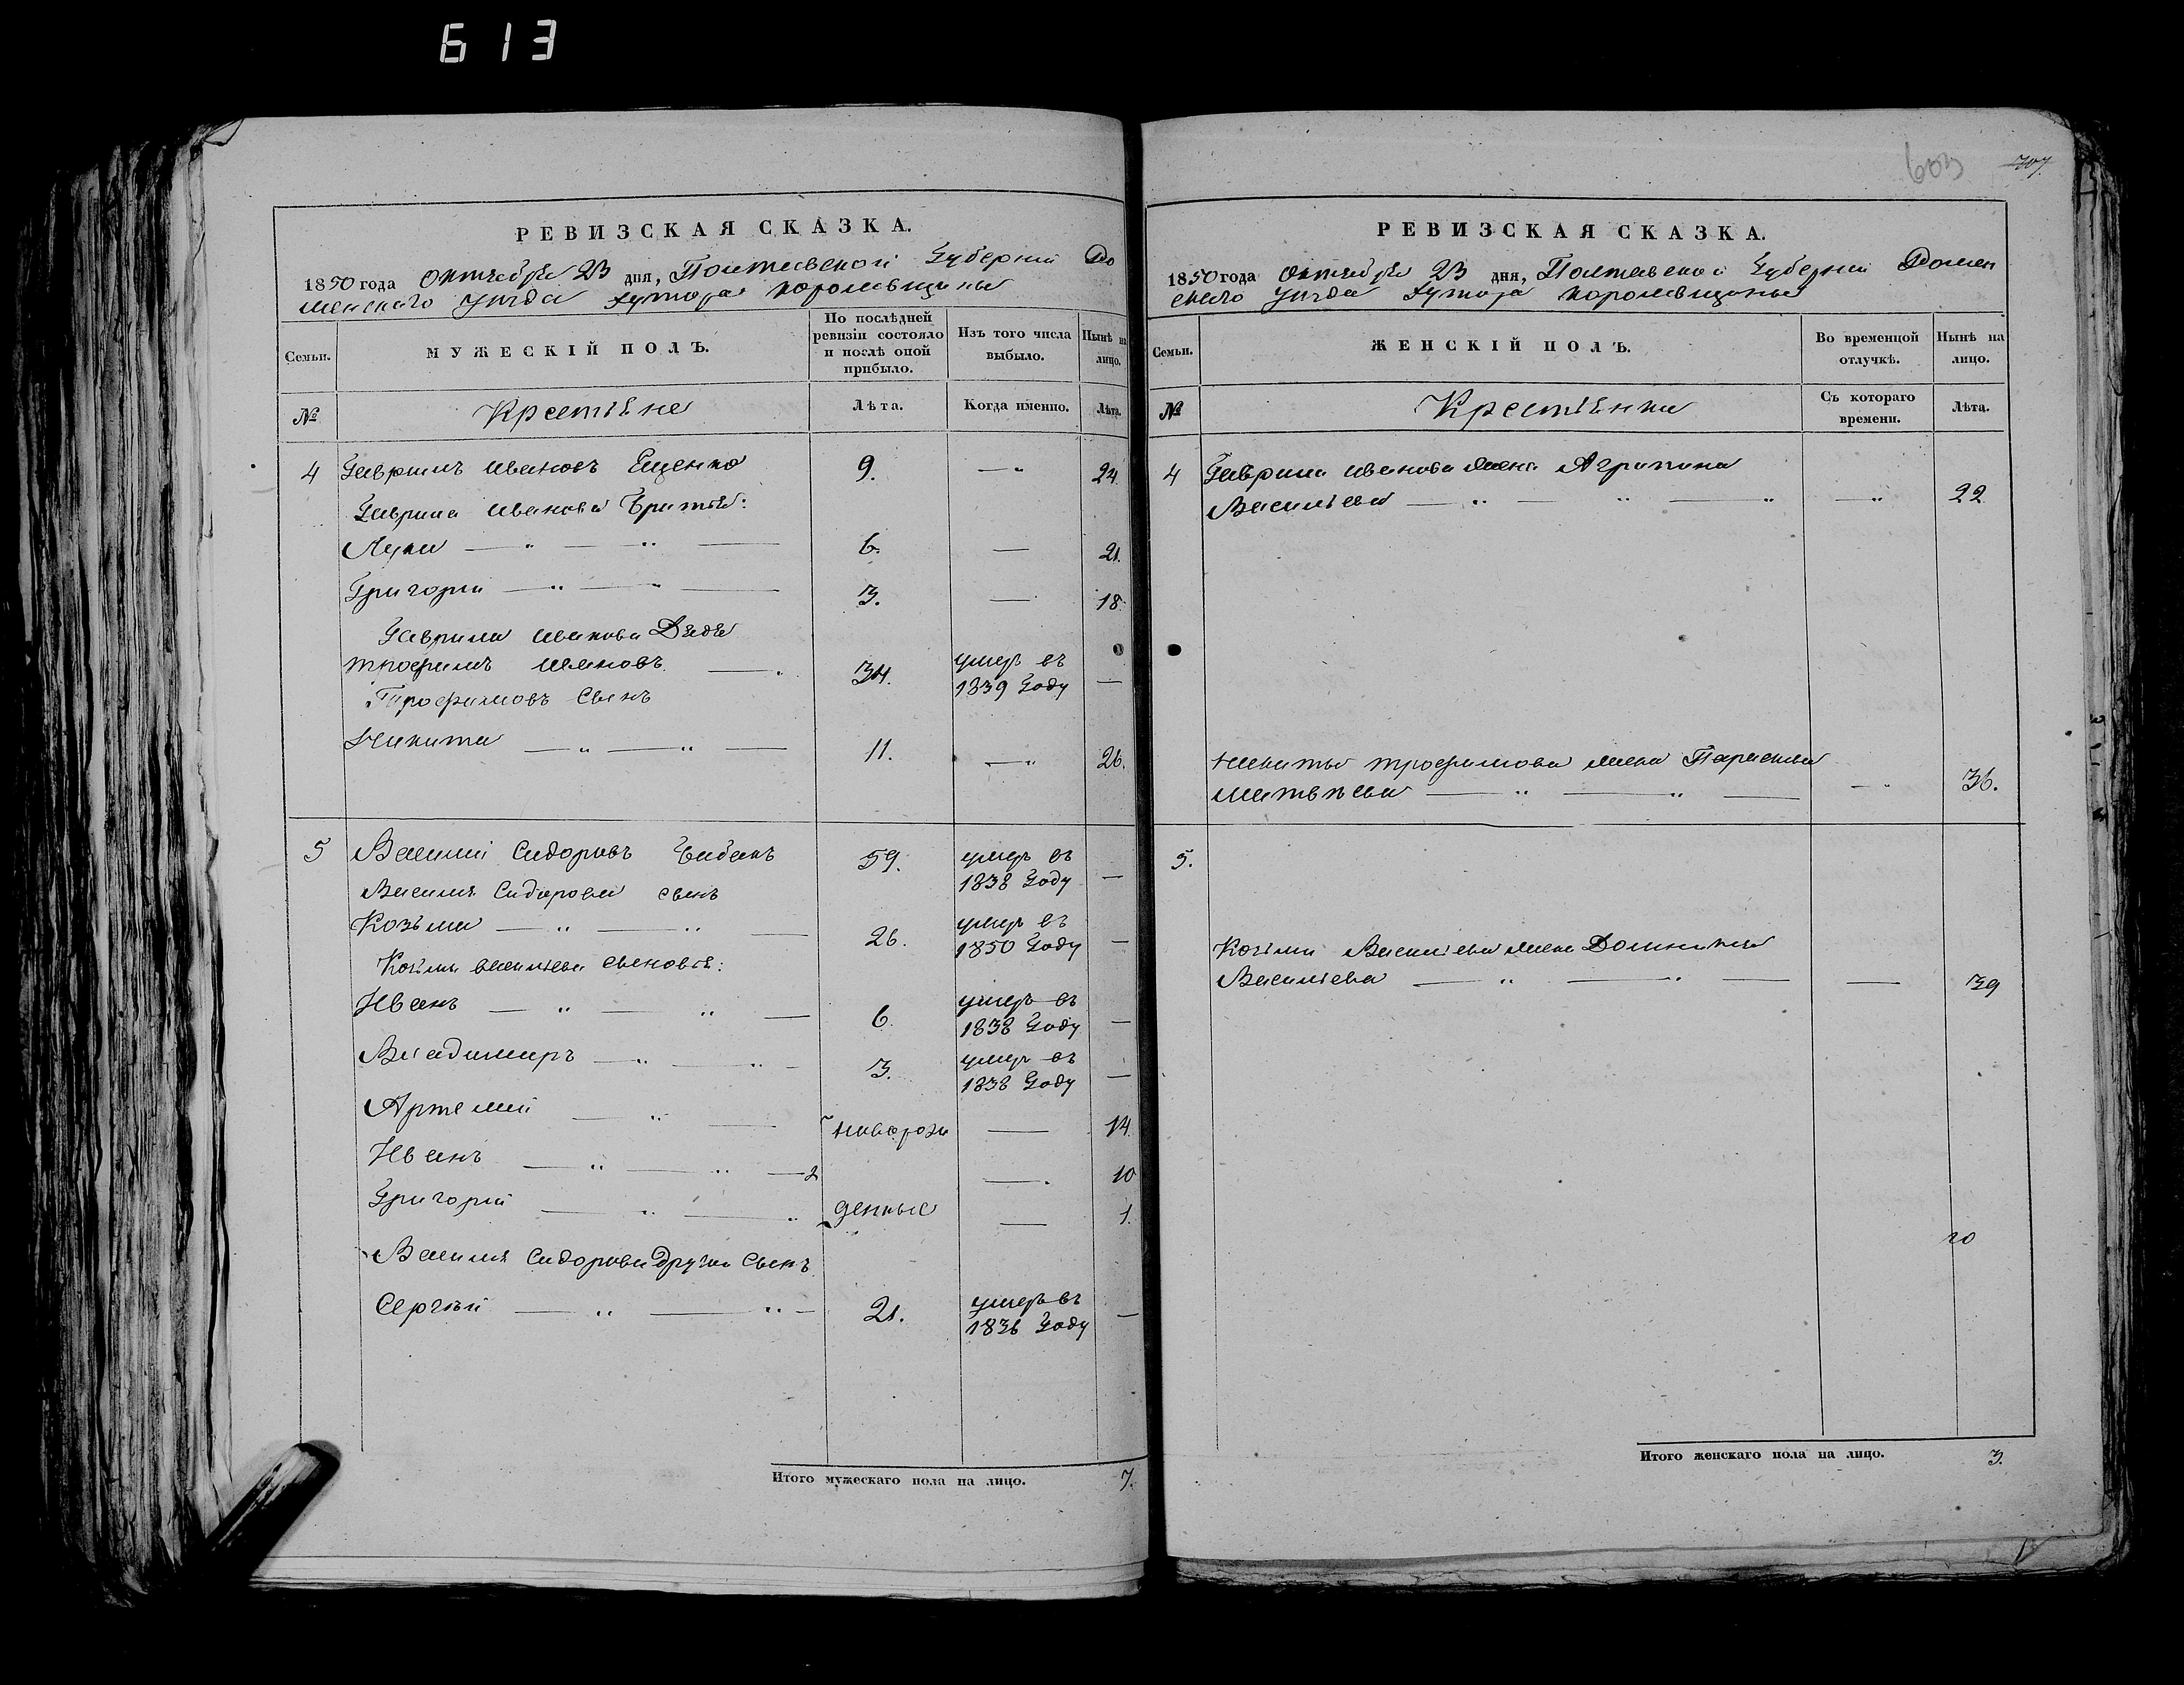 613
РЕВИЗСКАЯ СКАЗКА.
1850 года Октября 23 дня, Полтавской Губерніи Ро
менскаго Уѣзда Хутора Королевщины
Семьи.
МУЖЕСКІЙ ПОЛЪ.
По послѣдней ревизіи состояло и послѣ оной прибыло.
Изъ того числа выбыло.
Нынѣ на лицо.
№
Крестьяне
Лѣта.
Когда именно.
Лѣта.
4 Гаврилъ Ивановъ Ещенко 9. — 24.
Гаврила Иванова Братья:
Лука — " — " — 6. — 21.
Григорій — " — " — 3. — 18.
Гаврила Иванова Дядя
Трофимъ Ивановъ — 34. умеръ въ 1839 Году —
Трофимовъ Сынъ
Никита — " — " — 11. — " 26.
5 Василій Сидоровъ 59. умеръ въ 1838 Году —
Василія Сидорова сынъ
Козьма — " — " — 26. умеръ въ 1850 Году —
Козьмы Васильева сыновья:
Иванъ — " — " — 6. умеръ въ 1838 Году —
Владимиръ — " — " — 3. умеръ въ 1838 Году —
Артемій — " — новорож — 14.
Иванъ — " — " — 2 — 10
Григорій — " — " денные — 1.
Василія Сидорова другой Сынъ
Сергѣй — " — " — 21. умеръ въ 1836 Году —
Итого мужескаго пола на лицо. 7.
603 707
РЕВИЗСКАЯ СКАЗКА.
1850 года Октября 23 дня, Полтавской Губерніи Ромен
скаго Уѣзда Хутора Королевщины
Семьи.
ЖЕНСКІЙ ПОЛЪ.
Во временной отлучкѣ.
Нынѣ на лицо.
№
Крестьянки
Съ котораго времени.
Лѣта.
4 Гаврила Иванова жена Агрипина
Васильева — " — " — " — " 22
Никиты Трофимова жена Параскева
Матвѣева — " — " — — " 36.
5.
Козьмы Васильева жена Домникія
Васильева — " — " — — 39
20
Итого женскаго пола на лицо. 3.